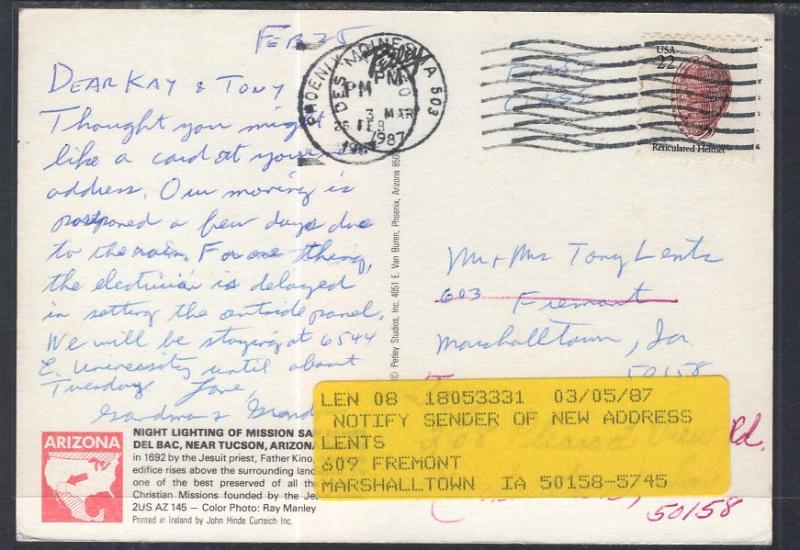 FEB 25
DEAR KAY & TONY
Thought you might
like a card at your
address. Our moving is
postponed a few days due
to the rain. For one thing,
the electrician is delayed
in setting the outside panel.
We will be staying at 6544
E. University until about
Tuesday. Love,
Grandma & Grand
PHOENIX
PM
26 FEB
1987
DES MOINES IA 503
PM
3 MAR
1987
FIRST
CLASS
USA
22
Reticulated Helmet
© Petley Studios, Inc. 4051 E. Van Buren, Phoenix, Arizona 850
Mr + Mrs Tony Lents
603 Fremont
Marshalltown, Ia.
50158
LEN 08 18053331 03/05/87
NOTIFY SENDER OF NEW ADDRESS
LENTS
609 FREMONT
MARSHALLTOWN IA 50158-5745
Rd.
50158
ARIZONA
NIGHT LIGHTING OF MISSION SA
DEL BAC, NEAR TUCSON, ARIZONA
in 1692 by the Jesuit priest, Father Kino,
edifice rises above the surrounding land
one of the best preserved of all th
Christian Missions founded by the Je
2US AZ 145 — Color Photo: Ray Manley
Printed in Ireland by John Hinde Curteich Inc.